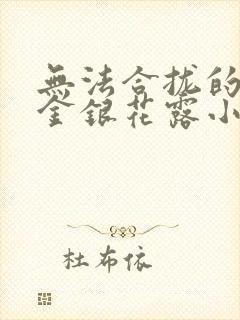 無法合拢的
金銀花露小
杜布依